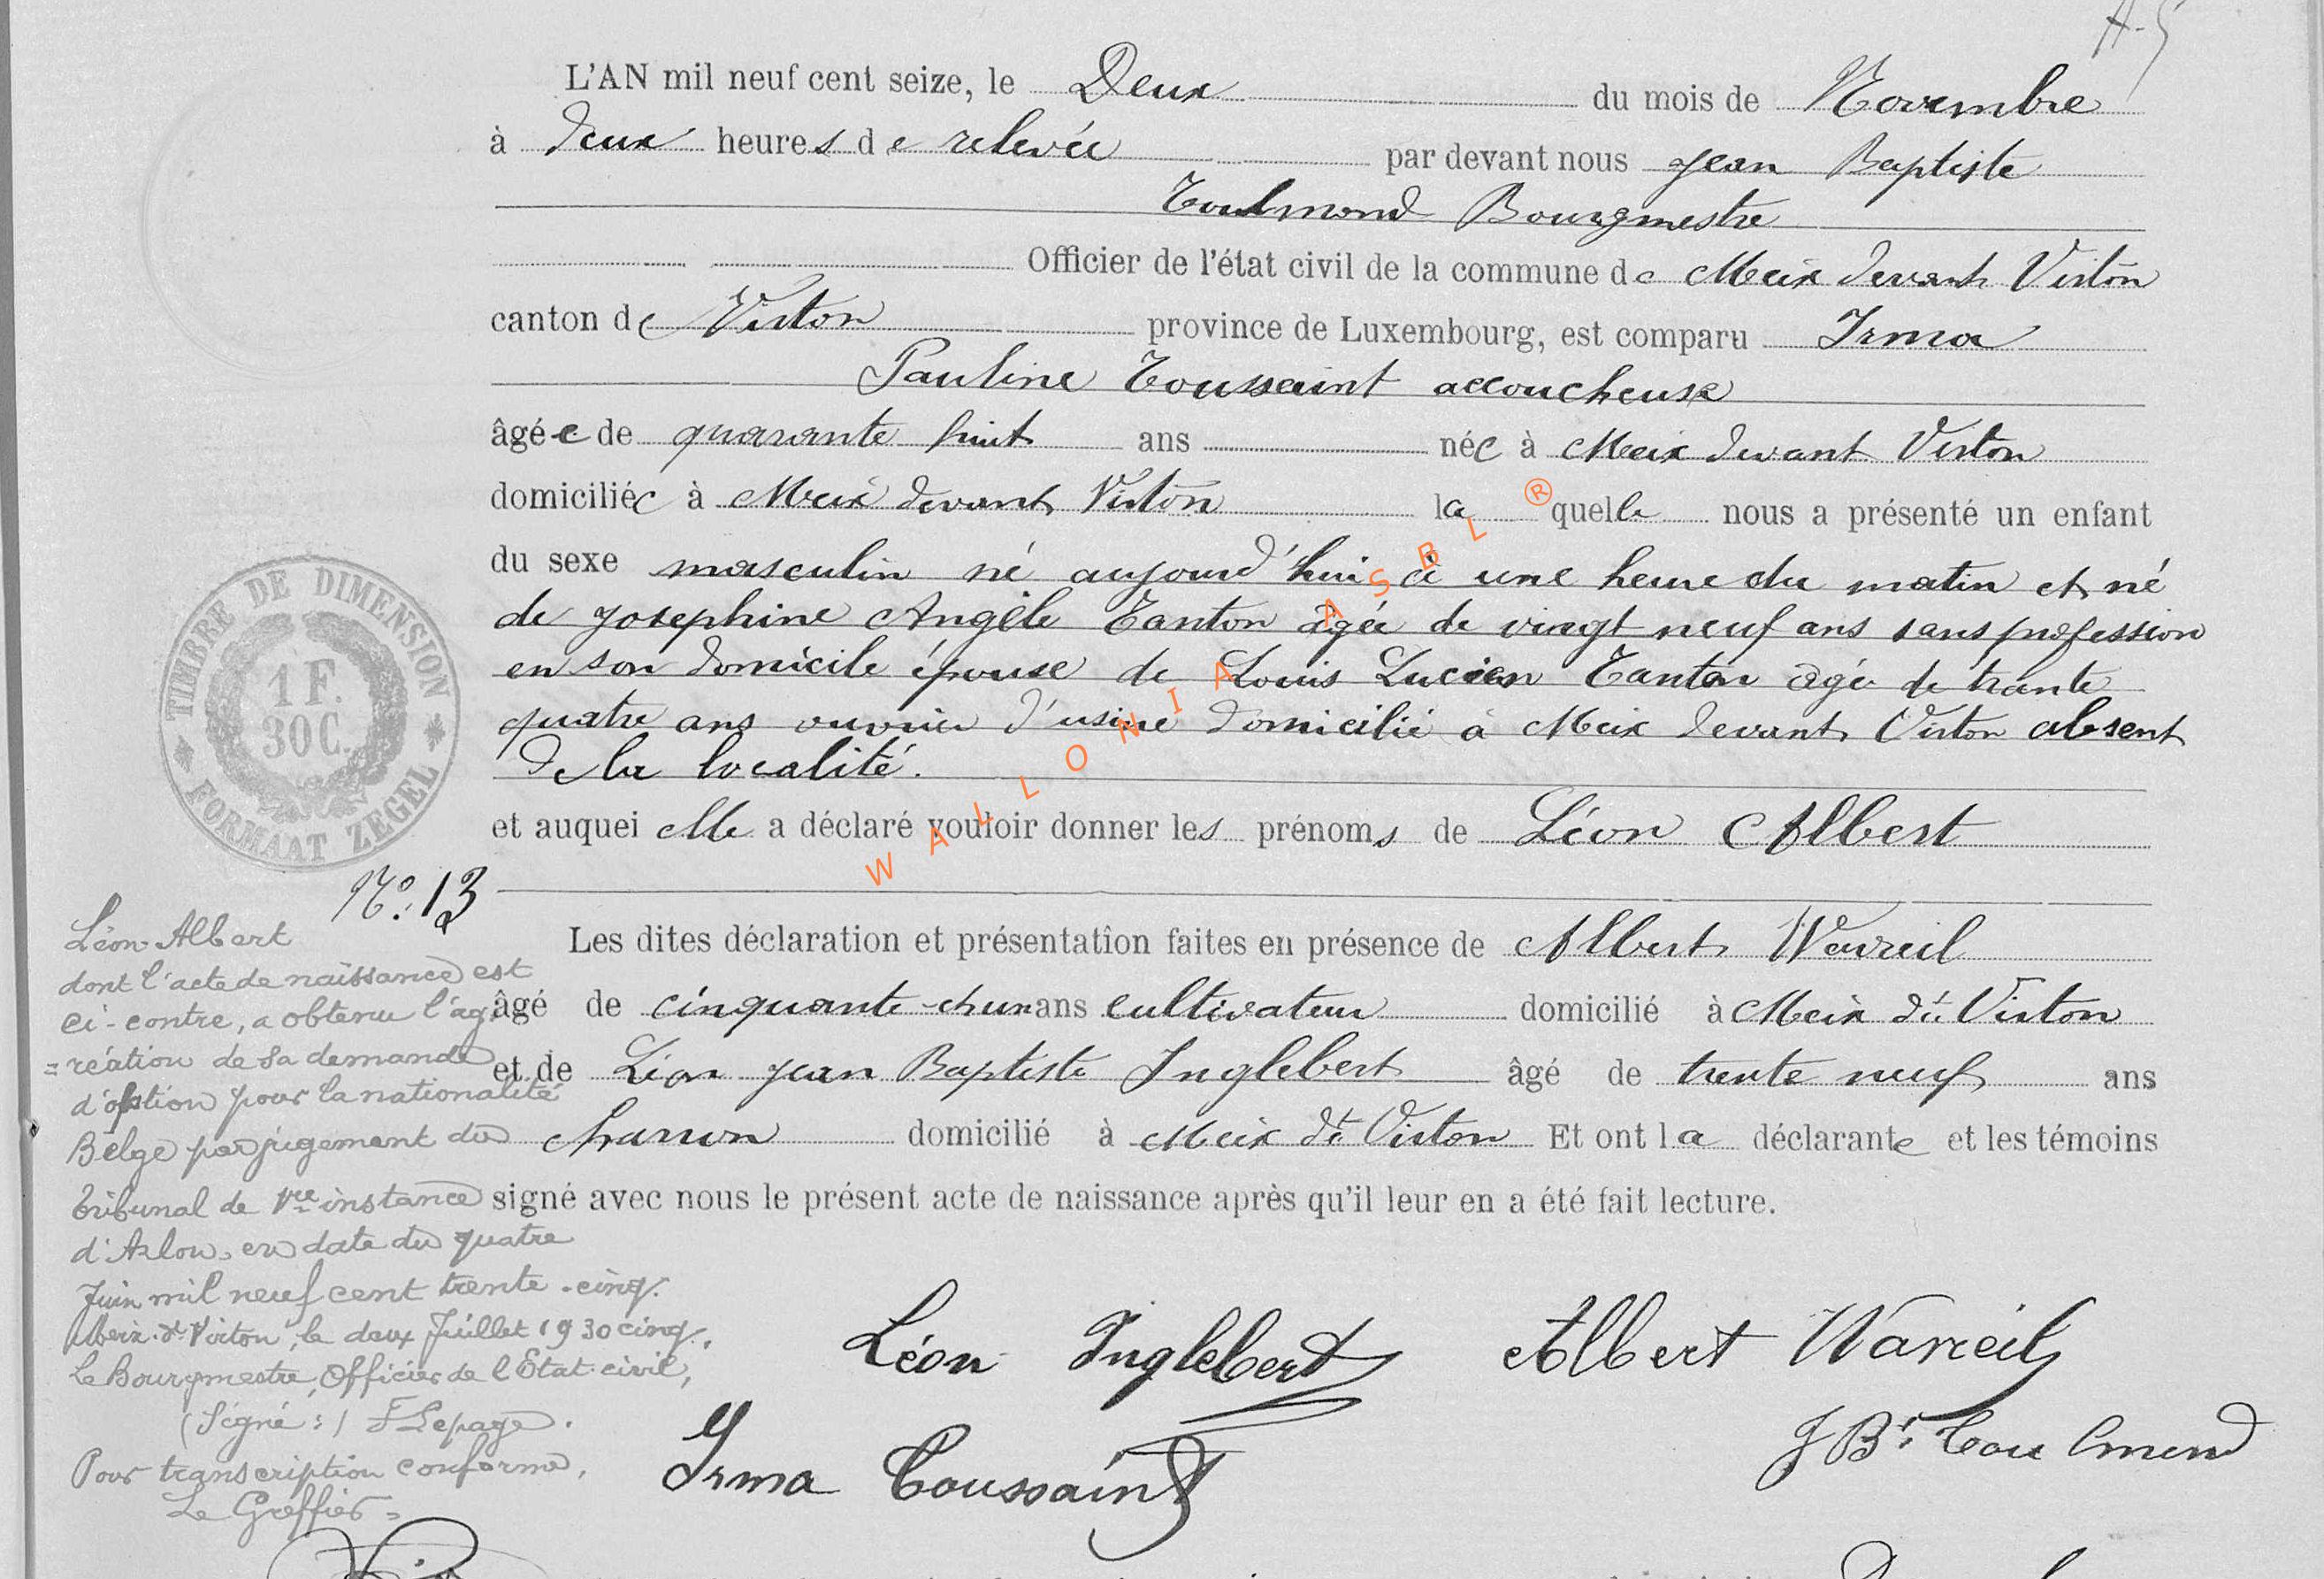 A-5
L'AN mil neuf cent seize, le Deux du mois de Novembre
à deux heures de relevée par devant nous Jean Baptiste
Toulmond Bourgmestre
Officier de l'état civil de la commune de Meix devant Virton
canton de Virton province de Luxembourg, est comparu Irma
Pauline Toussaint accoucheuse
âgée de quarante huit ans née à Meix devant Virton
domiciliée à Meix devant Virton laquelle nous a présenté un enfant
du sexe masculin né aujourd'hui à une heure du matin et né
de Joséphine Angèle Tanton âgée de vingt neuf ans sans profession
en son domicile épouse de Louis Lucien Tanton âgé de trente
quatre ans ouvrier d'usine domicilié à Meix devant Virton absent
de la localité.
et auquel elle a déclaré vouloir donner les prénoms de Léon Albert
Les dites déclaration et présentation faites en présence de Albert Wavreil
âgé de cinquante-et un ans cultivateur domicilié à Meix dt Virton
et de Léon Jean Baptiste Inglebert âgé de trente neuf ans
charron domicilié à Meix dt Virton Et ont la déclarante et les témoins
signé avec nous le présent acte de naissance après qu'il leur en a été fait lecture.
Léon Inglebert Albert Wavreil
Irma Toussaint J Bte Toulmond
TIMBRE DE DIMENSION
1 F.
30 C.
FORMAAT ZEGEL
No. 13
Léon-Albert
dont l'acte de naissance est
ci-contre, a obtenu l'ag
=réation de sa demande
d'option pour la nationalité
Belge par jugement du
tribunal de 1re instance
d'Arlon, en date du quatre
Juin mil neuf cent trente-cinq.
Meix-dt-Virton, le deux Juillet 1930 cinq.
Le Bourgmestre, Officier de l'Etat-civil,
(Signé:) F Lepage.
Pour transcription conforme,
Le Greffier=
WALLONIA ASBL ®